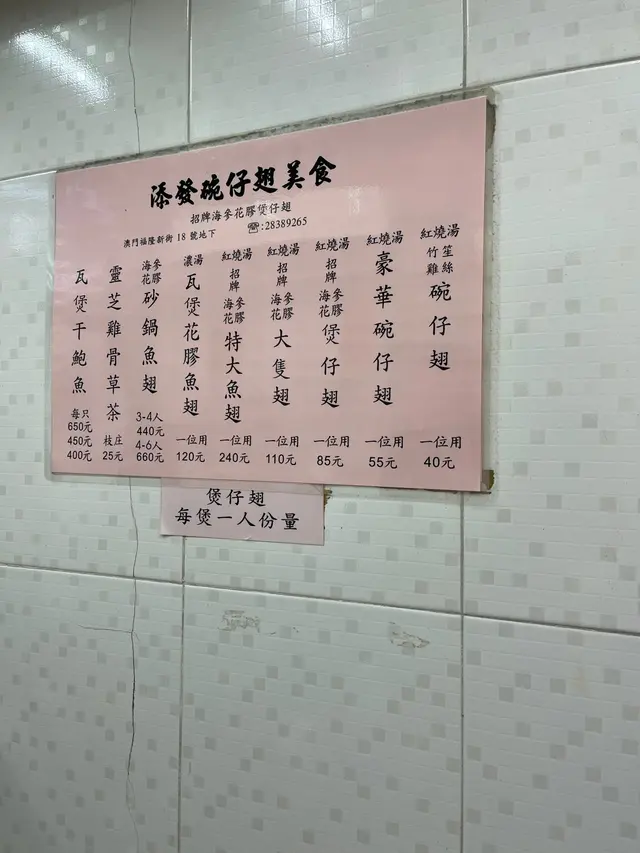 添發碗仔翅美食
招牌海參花膠煲仔翅
澳門福隆新街 18 號地下 ☎:28389265
紅燒湯 竹笙雞絲 碗仔翅 一位用 40元
紅燒湯 豪華碗仔翅 一位用 55元
紅燒湯 招牌 海參花膠 煲仔翅 一位用 85元
紅燒湯 招牌 海參花膠 大隻翅 一位用 110元
紅燒湯 招牌 海參花膠 特大魚翅 一位用 240元
濃湯 瓦煲花膠魚翅 一位用 120元
海參花膠 砂鍋魚翅 3-4人 440元 4-6人 660元
靈芝雞骨草茶 枝庄 25元
瓦煲干鮑魚 每只 650元 450元 400元
煲仔翅
每煲一人份量